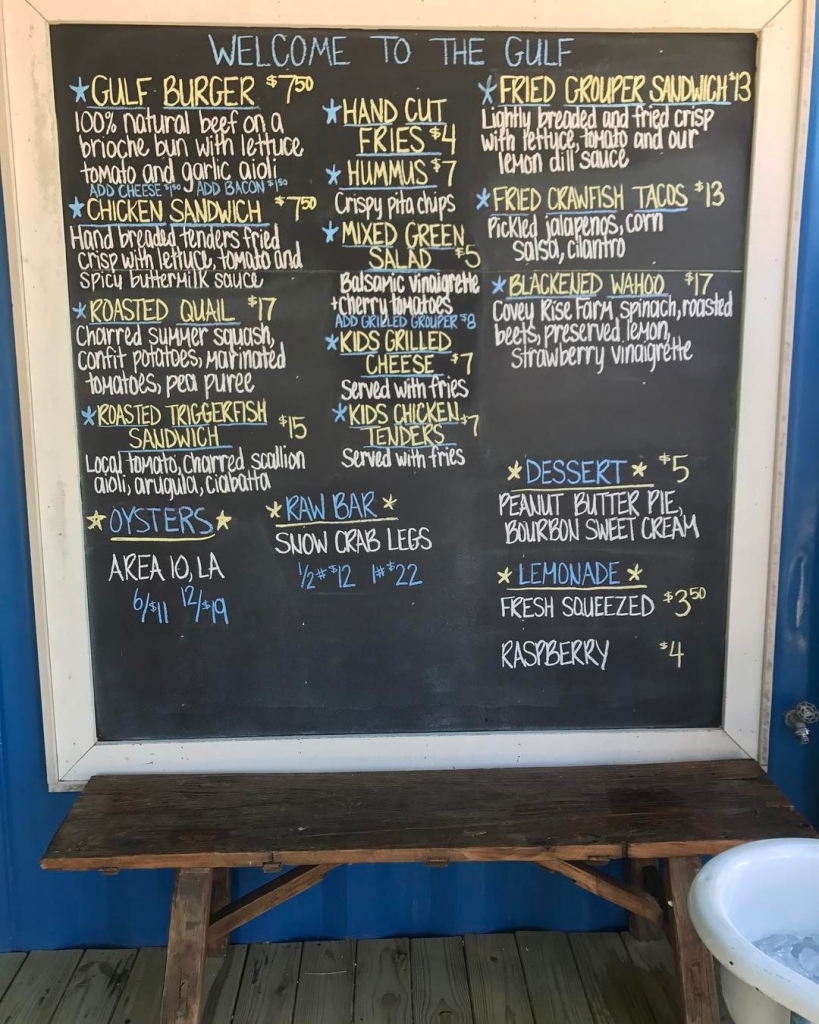 WELCOME TO THE GULF
GULF BURGER $7.50
100% natural beef on a
brioche bun with lettuce
tomato and garlic aioli
ADD CHEESE $1.50 ADD BACON $1.50
CHICKEN SANDWICH $7.50
Hand breaded tenders fried
crisp with lettuce, tomato and
spicy buttermilk sauce
ROASTED QUAIL $17
Charred summer squash,
confit potatoes, marinated
tomatoes, pea puree
ROASTED TRIGGERFISH
SANDWICH $15
Local tomato, charred scallion
aioli, arugula, ciabatta
HAND CUT
FRIES $4
HUMMUS $7
Crispy pita chips
MIXED GREEN
SALAD $5
Balsamic vinaigrette
+cherry tomatoes
ADD GRILLED GROUPER $8
KIDS GRILLED
CHEESE $7
Served with fries
KIDS CHICKEN
TENDERS $7
Served with fries
FRIED GROUPER SANDWICH $13
Lightly breaded and fried crisp
with lettuce, tomato and our
lemon dill sauce
FRIED CRAWFISH TACOS $13
Pickled jalapenos, corn
salsa, cilantro
BLACKENED WAHOO $17
Covey Rise Farm spinach, roasted
beets, preserved lemon,
strawberry vinaigrette
OYSTERS
AREA 10, LA
6/$11 12/$19
RAW BAR
SNOW CRAB LEGS
1/2# $12 1# $22
DESSERT $5
PEANUT BUTTER PIE,
BOURBON SWEET CREAM
LEMONADE
FRESH SQUEEZED $3.50
RASPBERRY $4